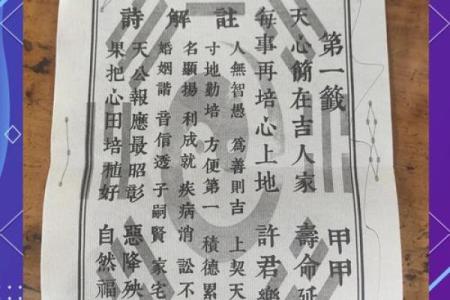 第一籤 甲甲
天心簡在吉人家 壽命延
每事再培心上地 許君樂
註解詩
人無智愚 爲善則吉 上契天
寸地勤培 方便第一 積德累
名顯揚 利成就 疾病消 訟不
婚姻諧 音信透 子嗣賢 家宅
天公報應最昭彰 惡降殃
果把心田培植好 自然福